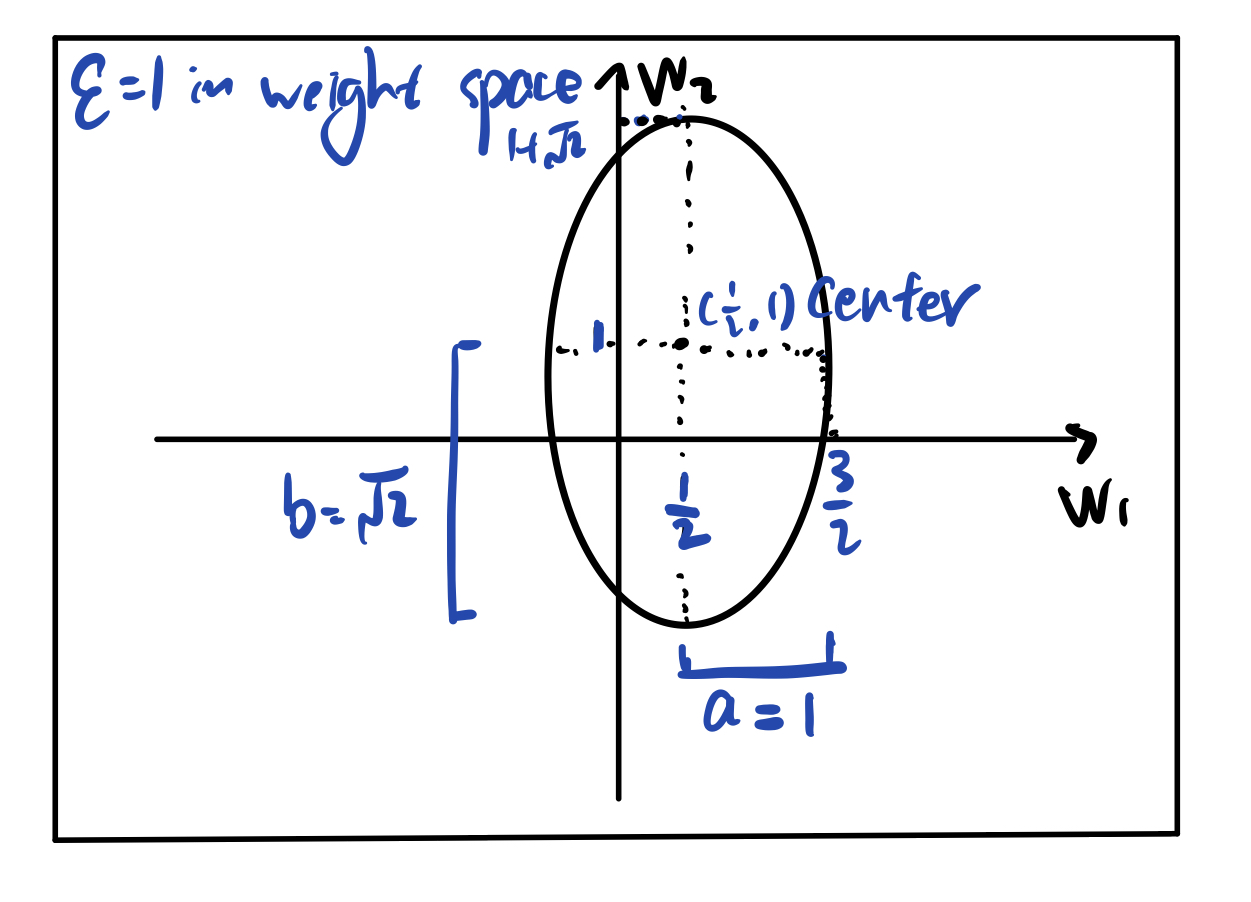 ℰ=1 in weight space
W₂
1+√2
(1/2, 1) Center
1
b=√2
1/2
3/2
W₁
a=1